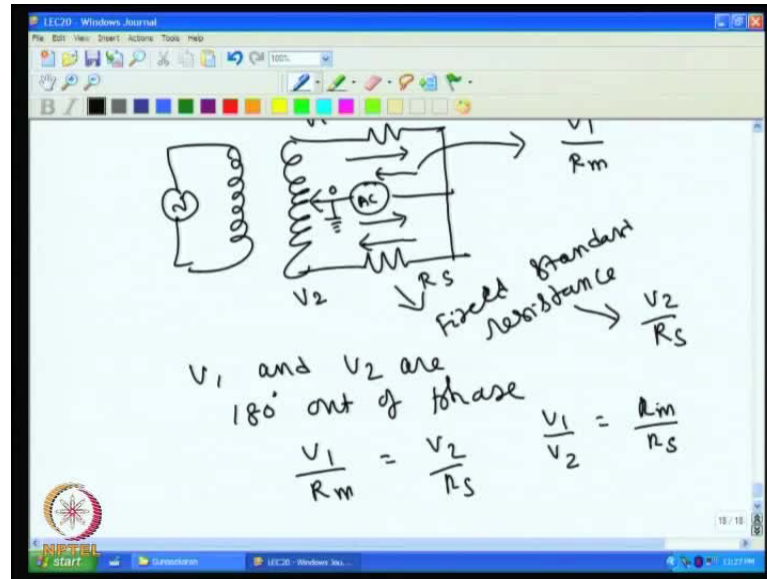 LEC20 - Windows Journal
File Edit View Insert Actions Tools Help
100%
B I
V1
V1
Rm
AC
RS
V2
Fixed standard
resistance
V2
RS
V1 and V2 are
180° out of phase
V1 = V2
Rm RS
V1 = Rm
V2 RS
18 / 18
NPTEL
start
LEC20 - Windows Jou...
11:27 PM